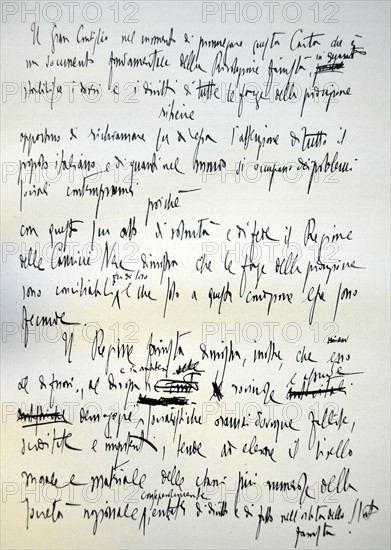 Il Gran Consiglio nel momento di promulgare questa Carta che è
un documento fondamentale della Rivoluzione fascista in quanto
stabilisce i doveri e i diritti di tutte le forze della produzione
ritiene
opportuno di richiamare su di essa l'attenzione di tutto il
popolo italiano e di quanti nel mondo si occupano dei problemi
sociali contemporanei
poichè
con questo suo atto di volontà e di fede il Regime
delle Camicie Nere dimostra che le forze della produzione
sono conciliabili fra di loro e che solo a questa condizione esse sono
feconde.
Il Regime fascista dimostra, inoltre, che esso
al di fuori, al di sopra e in antitesi colle
demagogie socialistiche oramai dovunque fallite,
e impotenti, tende ad elevare il livello
morale e materiale delle classi più numerose della
società nazionale e di diritto e di fatto nell'orbita dello Stato
fascista.